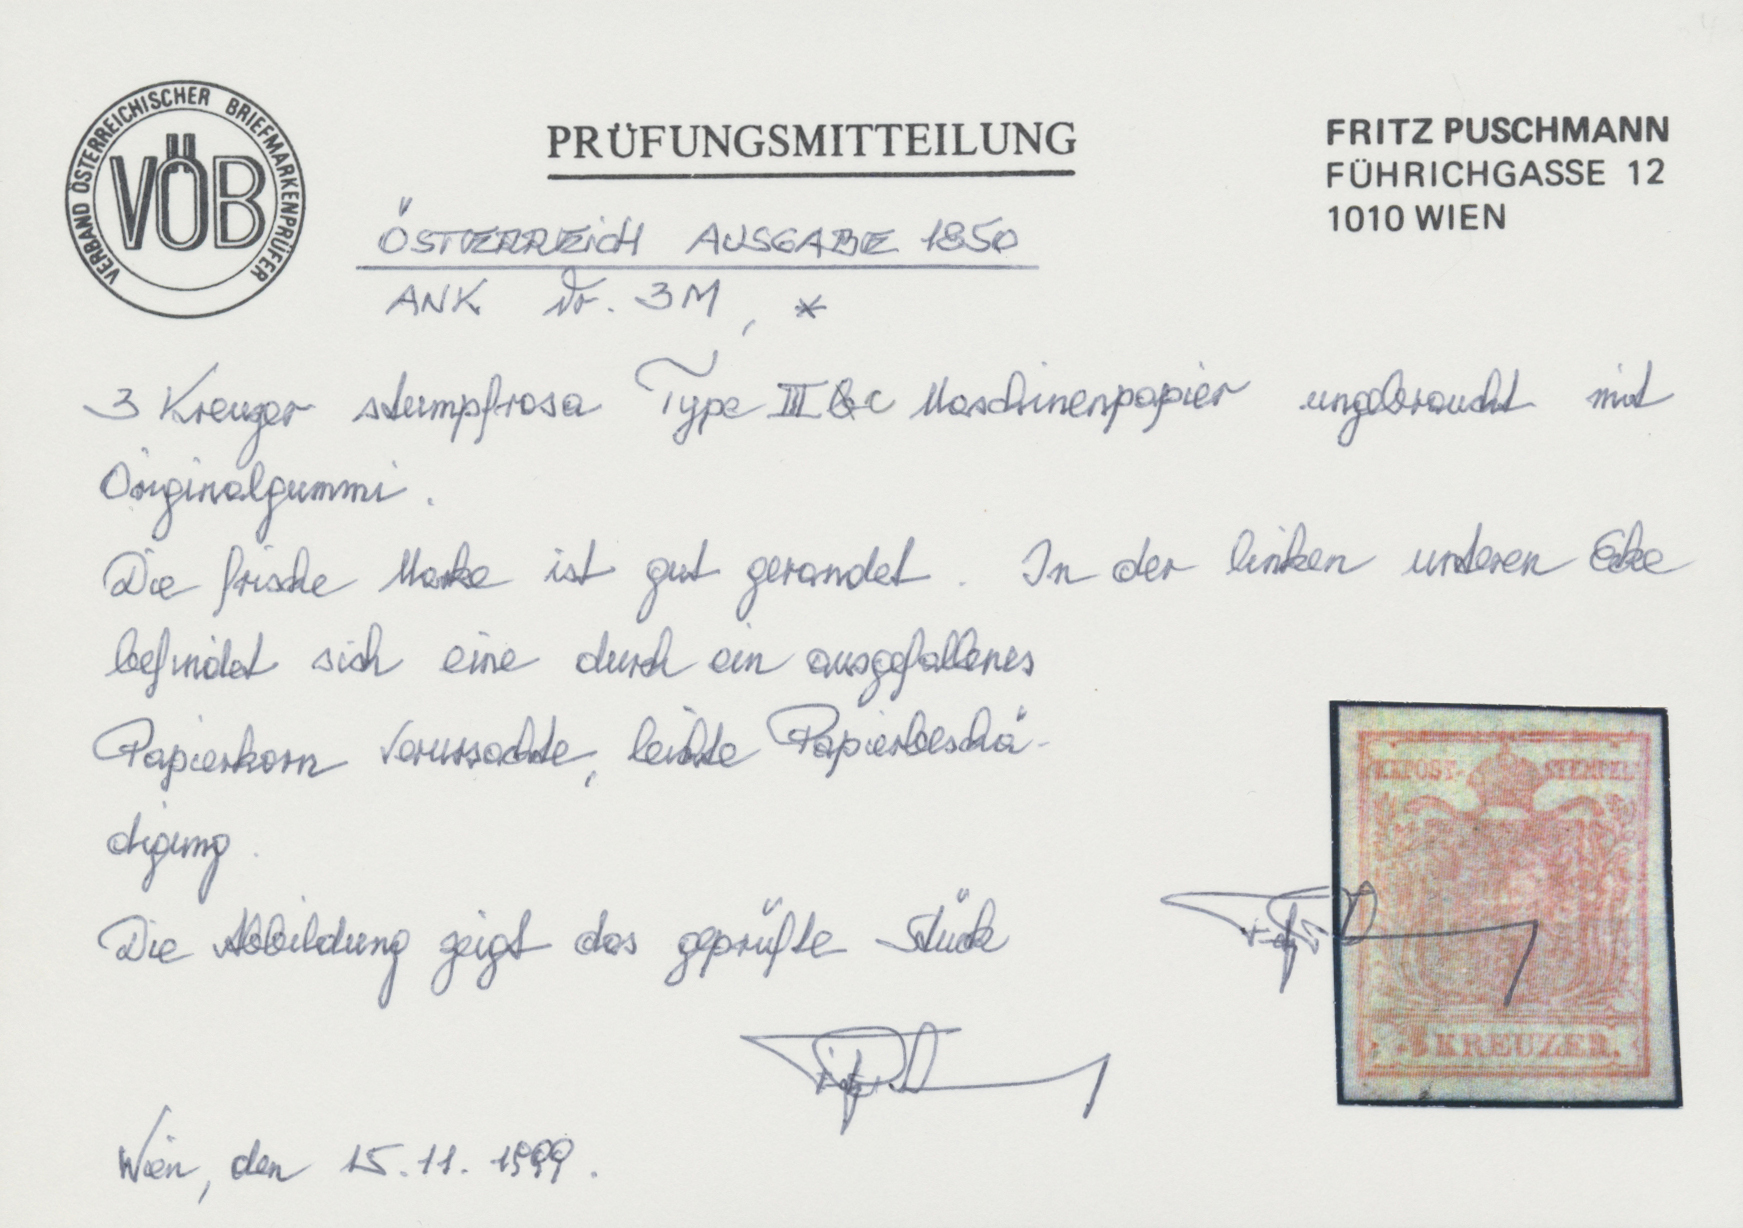 VERBAND ÖSTERREICHISCHER BRIEFMARKENPRÜFER
VÖB
PRÜFUNGSMITTEILUNG
FRITZ PUSCHMANN
FÜHRICHGASSE 12
1010 WIEN
ÖSTERREICH AUSGABE 1850
ANK Nr. 3M, *
3 Kreuzer stumpfrosa Type III c Maschinenpapier ungebraucht mit
Originalgummi.
Die frische Marke ist gut gerandet. In der linken unteren Ecke
befindet sich eine durch ein ausgefallenes
Papierkorn verursachte, leichte Papierbeschä-
digung.
Die Abbildung zeigt das geprüfte Stück
KKPOST-STEMPEL
3 KREUZER.
Wien, den 15.11.1999.